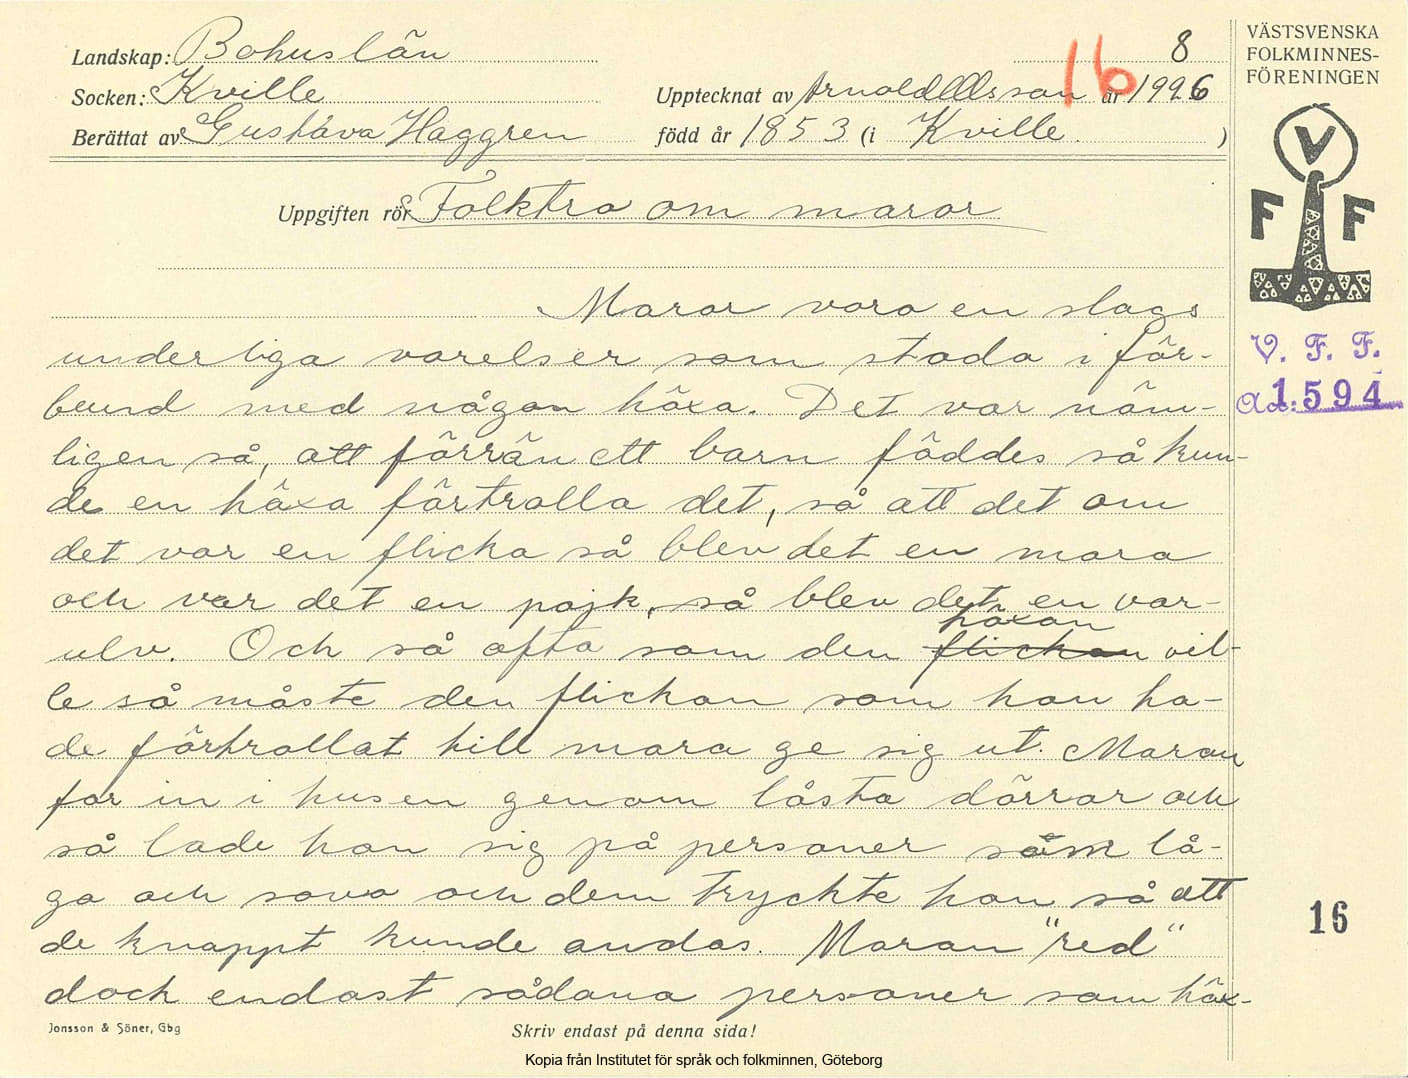 Landskap: Bohuslän 8
VÄSTSVENSKA
FOLKMINNES-
FÖRENINGEN
16
Socken: Kville Upptecknat av Arnold Olsson år 1926
Berättat av Gustava Haggren född år 1853 (i Kville.)
V
F F
Uppgiften rör Folktro om maror
Maror voro en slags
underliga varelser som stodo i för-
bund med någon häxa. Det var näm-
ligen så, att förrän ett barn föddes så kun-
de en häxa förtrolla det, så att det om
det var en flicka så blev det en mara
och var det en pojk, så blev det en var-
ulv. Och så ofta som den flickan häxan vil-
le så måste den flickan som hon ha-
de förtrollat till mara ge sig ut. Maran
for in i husen genom låsta dörrar och
så lade hon sig på personer som lå-
go och sovo och dem tryckte hon så att
de knappt kunde andas. Maran "red"
doch endast sådana personer som häx-
V. F. F.
Acc: 1594
16
Jonsson & Söner, Gbg
Skriv endast på denna sida!
Kopia från Institutet för språk och folkminnen, Göteborg